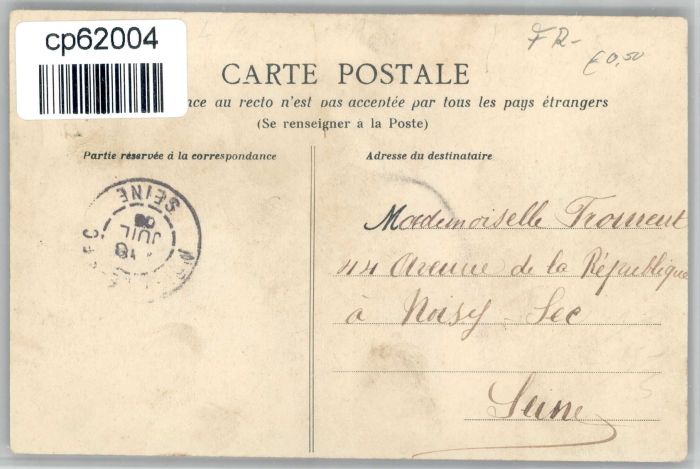 cp62004
FR-
€0,50
CARTE POSTALE
nce au recto n'est pas acceptée par tous les pays étrangers
(Se renseigner à la Poste)
Partie réservée à la correspondance
Adresse du destinataire
SEINE
JUIL
Mademoiselle Froment
44 Avenue de la République
à Noisy-Sec
Seine